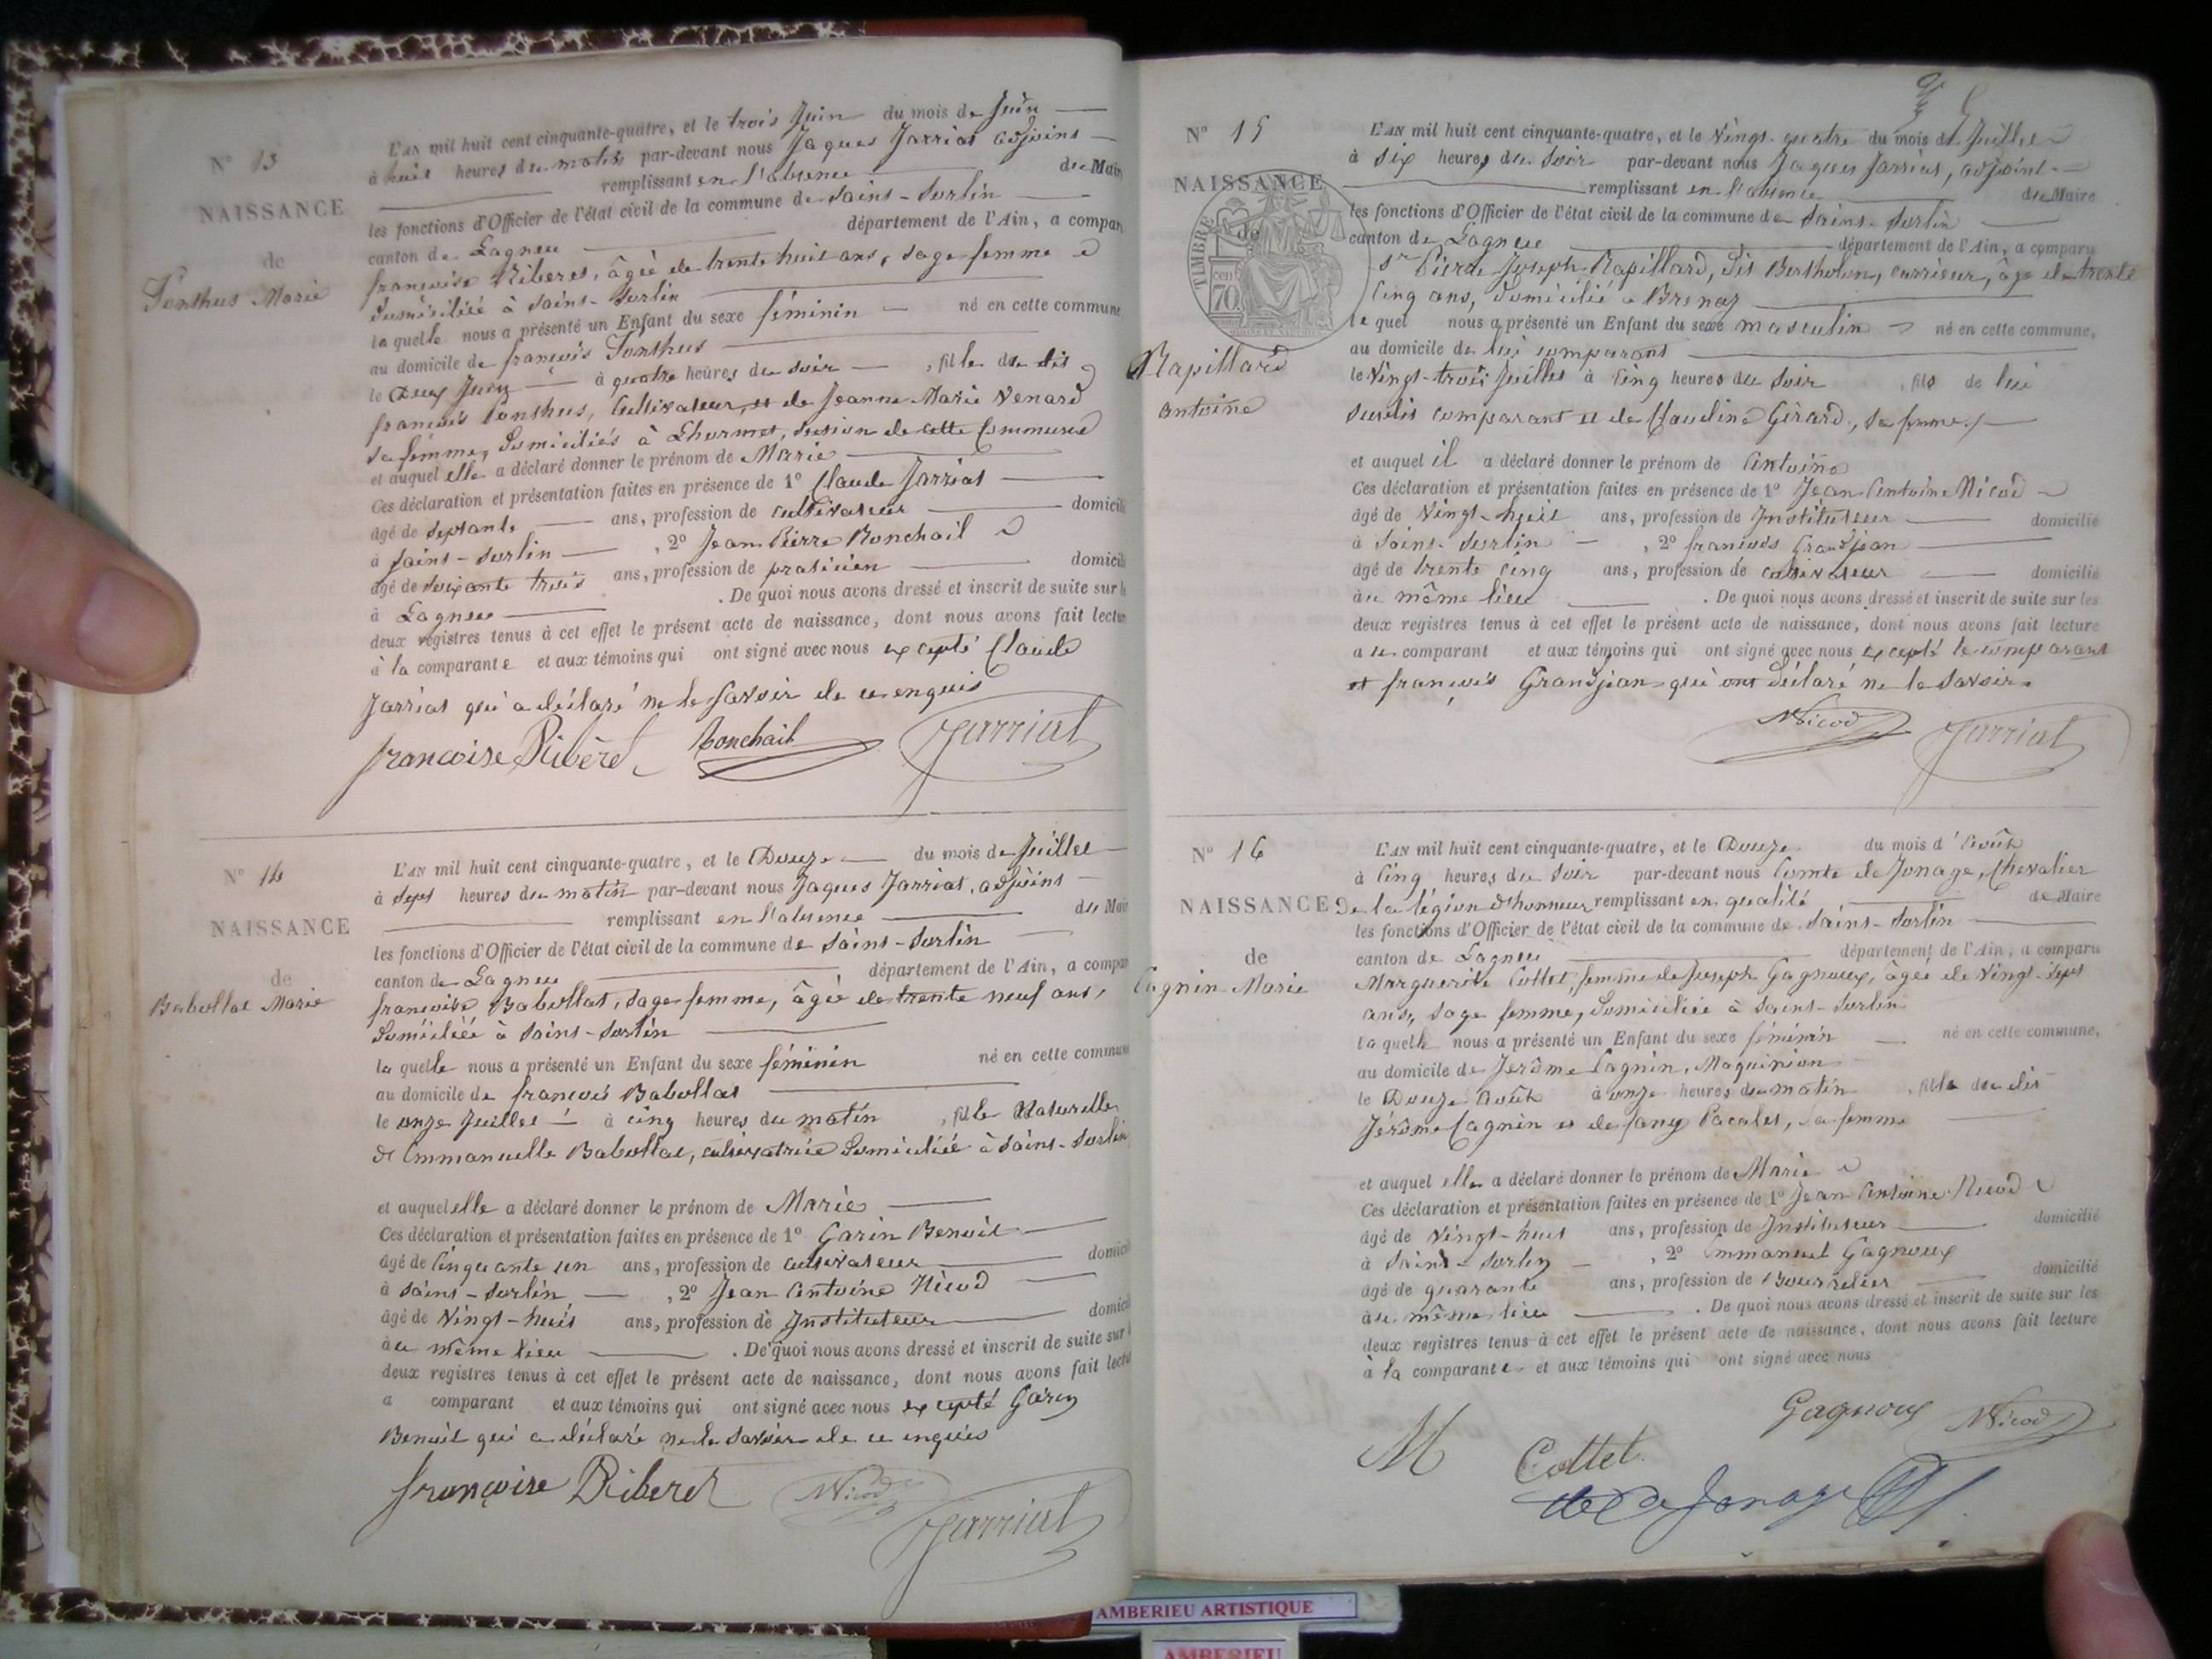 N° 13
NAISSANCE
de
Sonthus Marie
L'AN mil huit cent cinquante-quatre, et le trois Juin du mois de Juin
à huit heures du matin par-devant nous Jaques Jarriat adjoint
remplissant en l'absence du Maire
les fonctions d'Officier de l'état civil de la commune de Saint-Sorlin
canton de Lagneu département de l'Ain, a comparu
françoise Riberet, âgée de trente huit ans, sage femme
domiciliée à Saint-Sorlin
laquelle nous a présenté un Enfant du sexe féminin né en cette commune
au domicile de françois Sonthus
le Deux Juin à quatre heures du soir, fille du dit
françois Sonthus, Cultivateur et de Jeanne Marie Venard
sa femme, Domiciliés à Lhormet, section de cette Commune
et auquel elle a déclaré donner le prénom de Marie
Ces déclaration et présentation faites en présence de 1° Claude Jarriat
âgé de septante ans, profession de cultivateur domicilié
à Saint-Sorlin, 2° Jean Pierre Bonchail
âgé de soixante trois ans, profession de praticien domicilié
à Lagneu. De quoi nous avons dressé et inscrit de suite sur les
deux registres tenus à cet effet le présent acte de naissance, dont nous avons fait lecture
à la comparante et aux témoins qui ont signé avec nous excepté Claude
Jarriat qui a déclaré ne le savoir de ce enquis
françoise Riberet Bonchail Jarriat
N° 14
NAISSANCE
de
Babollat Marie
L'AN mil huit cent cinquante-quatre, et le Douze du mois de Juillet
à sept heures du matin par-devant nous Jaques Jarriat, adjoint
remplissant en l'absence du Maire
les fonctions d'Officier de l'état civil de la commune de Saint-Sorlin
canton de Lagneu département de l'Ain, a comparu
françoise Babollat, sage femme, âgée de trente neuf ans,
Domiciliée à Saint-Sorlin
laquelle nous a présenté un Enfant du sexe féminin né en cette commune
au domicile de françois Babollat
le onze Juillet à cinq heures du matin, fille Naturelle
d'Emmanuelle Babollat, cultivatrice Domiciliée à Saint-Sorlin
et auquel elle a déclaré donner le prénom de Marie
Ces déclaration et présentation faites en présence de 1° Garin Benoit
âgé de Cinquante un ans, profession de cultivateur domicilié
à Saint-Sorlin, 2° Jean Antoine Nicod
âgé de Vingt-huit ans, profession de Instituteur domicilié
au même lieu. De quoi nous avons dressé et inscrit de suite sur les
deux registres tenus à cet effet le présent acte de naissance, dont nous avons fait lecture
a comparant et aux témoins qui ont signé avec nous excepté Garin
Benoit qui a déclaré ne le savoir de ce enquis
françoise Riberet Nicod Jarriat
N° 15
NAISSANCE
de
TIMBRE
70 cen
Rapillard
antoine
L'AN mil huit cent cinquante-quatre, et le Vingt-quatre du mois de Juillet
à six heures du soir par-devant nous Jaques Jarriat, adjoint
remplissant en l'absence du Maire
les fonctions d'Officier de l'état civil de la commune de Saint-Sorlin
canton de Lagneu département de l'Ain, a comparu
Sr Pierre Joseph Rapillard, dit Bertholon, carrieur, âgé de trente
Cinq ans, domicilié à Brenaz
lequel nous a présenté un Enfant du sexe masculin né en cette commune,
au domicile de lui comparant
le Vingt-trois Juillet à Cinq heures du soir, fils de lui
susdit comparant et de Claudine Girard, sa femme
et auquel il a déclaré donner le prénom de Antoine
Ces déclaration et présentation faites en présence de 1° Jean Antoine Nicod
âgé de Vingt-huit ans, profession de Instituteur domicilié
à Saint-Sorlin, 2° françois Grandjean
âgé de trente cinq ans, profession de cultivateur domicilié
au même lieu. De quoi nous avons dressé et inscrit de suite sur les
deux registres tenus à cet effet le présent acte de naissance, dont nous avons fait lecture
au comparant et aux témoins qui ont signé avec nous excepté le comparant
et françois Grandjean qui ont déclaré ne le savoir.
Nicod Jarriat
N° 16
NAISSANCE
de
Cagnin Marie
L'AN mil huit cent cinquante-quatre, et le Douze du mois d'Août
à Cinq heures du soir par-devant nous Comte de Jonage, Chevalier
De la légion d'honneur remplissant en qualité de Maire
les fonctions d'Officier de l'état civil de la commune de Saint-Sorlin
canton de Lagneu département de l'Ain, a comparu
Marguerite Cottet, femme de Joseph Gagnoux, âgée de Vingt-sept
ans, sage femme, Domiciliée à Saint-Sorlin
laquelle nous a présenté un Enfant du sexe féminin né en cette commune,
au domicile de Jerôme Cagnin, Maquinion
le Douze Août à onze heures du matin, fille du dit
Jérôme Cagnin et de fany Pacalet, sa femme
et auquel elle a déclaré donner le prénom de Marie
Ces déclaration et présentation faites en présence de 1° Jean Antoine Nicod
âgé de Vingt-huit ans, profession de Instituteur domicilié
à Saint-Sorlin, 2° Emmanuel Gagnoux
âgé de quarante ans, profession de Bourrelier domicilié
au même lieu. De quoi nous avons dressé et inscrit de suite sur les
deux registres tenus à cet effet le présent acte de naissance, dont nous avons fait lecture
à la comparante et aux témoins qui ont signé avec nous
Gagnoux Nicod
M Cottet
de Jonage
AMBERIEU ARTISTIQUE
AMBERIEU